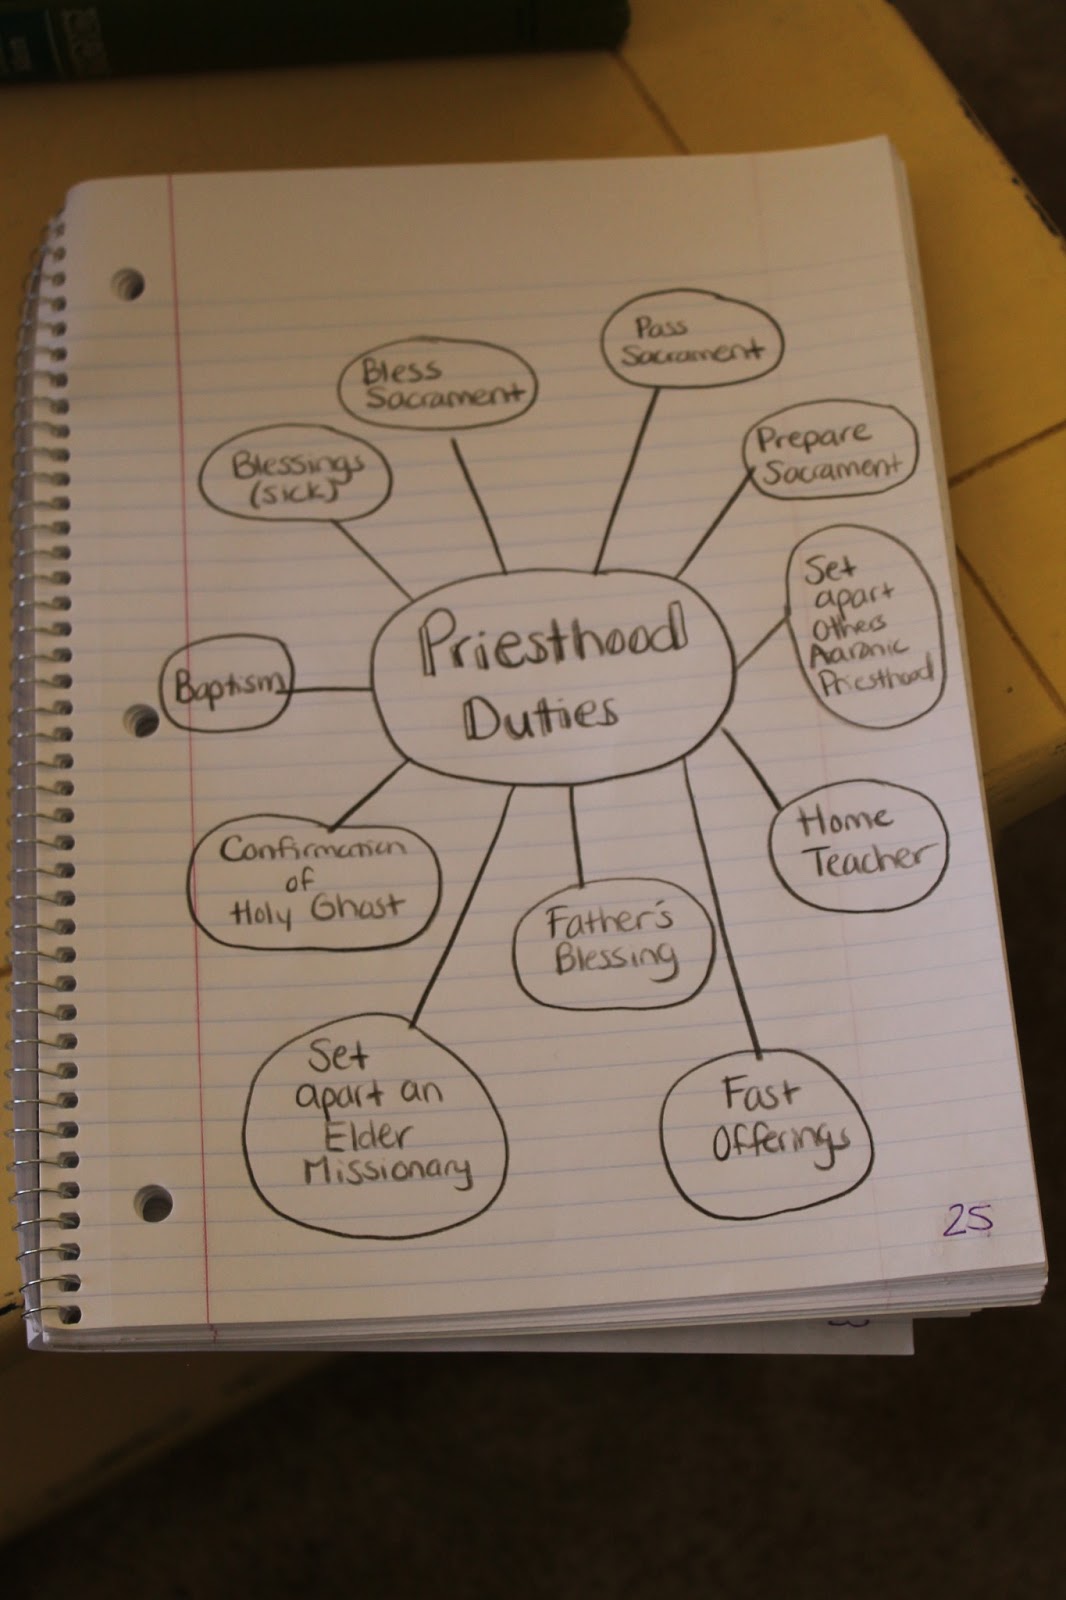 Pass
Sacrament
Bless
Sacrament
Prepare
Sacrament
Blessings
(sick)
Set
apart
Others
Aaronic
Priesthood
Priesthood
Duties
Baptism
Home
Teacher
Confirmation
of
Holy Ghost
Father's
Blessing
Set
apart an
Elder
Missionary
Fast
Offerings
25